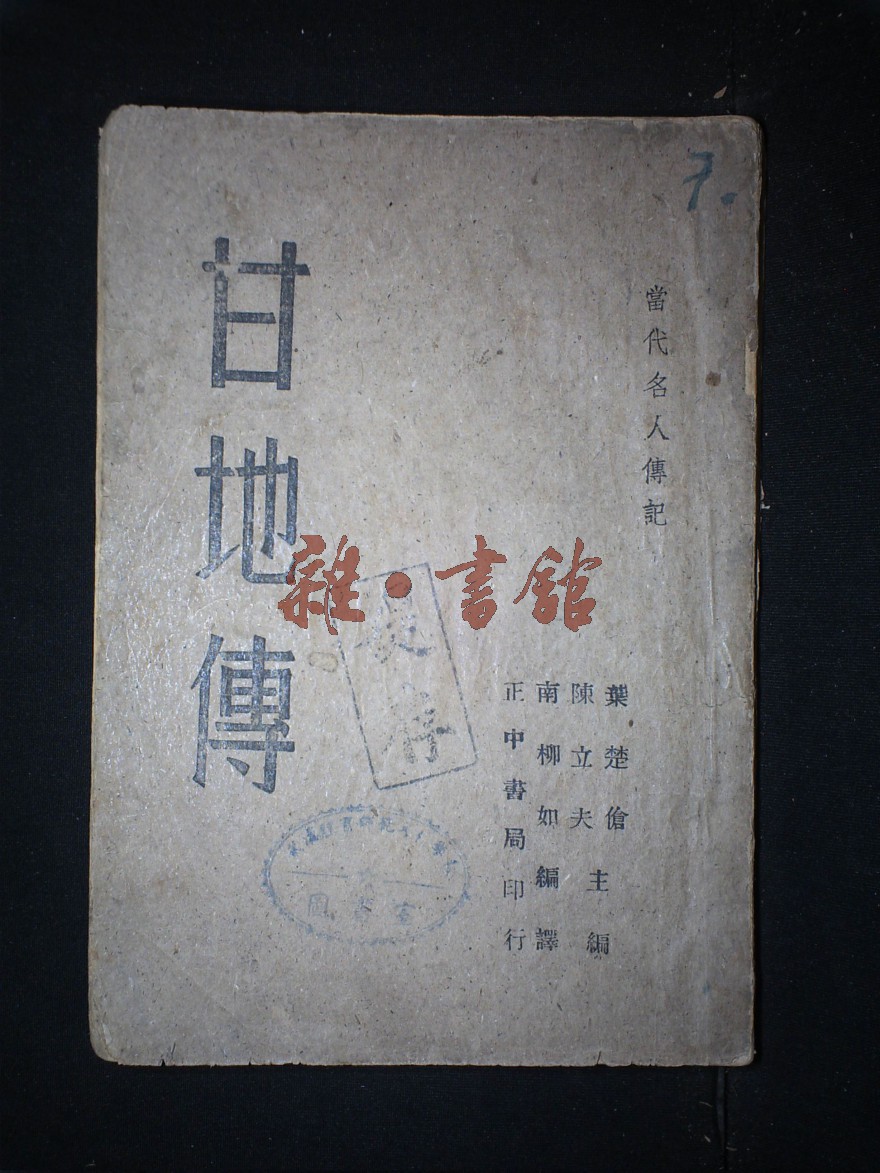 7.
當代名人傳記
葉楚傖
陳立夫
主編
南柳如編譯
正中書局印行
甘地傳
雜·書館
存